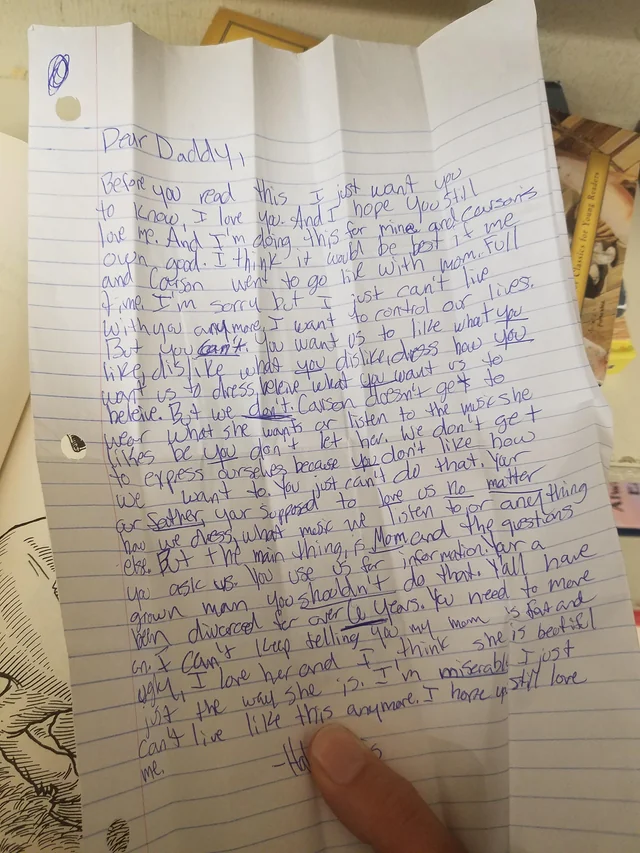 Dear Daddy,
Before you read this I just want you
to know, I love you. And I hope you still
love me. And I'm doing this for mine and Carson's
own good. I think it would be best if me
and Carson went to go live with mom. Full
time. I'm sorry but I just can't live
with you anymore, I want to control our lives.
But you can't. You want us to like what you
like, dislike what you dislike, dress how you
want us to dress, beleive what you want us to
beleive. But we don't. Carson doesn't get to
wear what she wants or listen to the music she
likes be you don't let her. We don't get
to express ourselves because you don't like how
we want to. You just can't do that. Your
our father your supposed to love us no matter
how we dress, what music we listen to or anything
else. But the main thing, is Mom and the questions
you ask us. You use us for information. Your a
grown man you shouldn't do that. Y'all have
been divorced for over 6 years. You need to move
on. I can't keep telling you my mom is fat and
ugly, I love her and I think she is beatiful
just the way she is. I'm miserable I just
can't live like this anymore. I hope you still love
me.
Classics for Young Readers